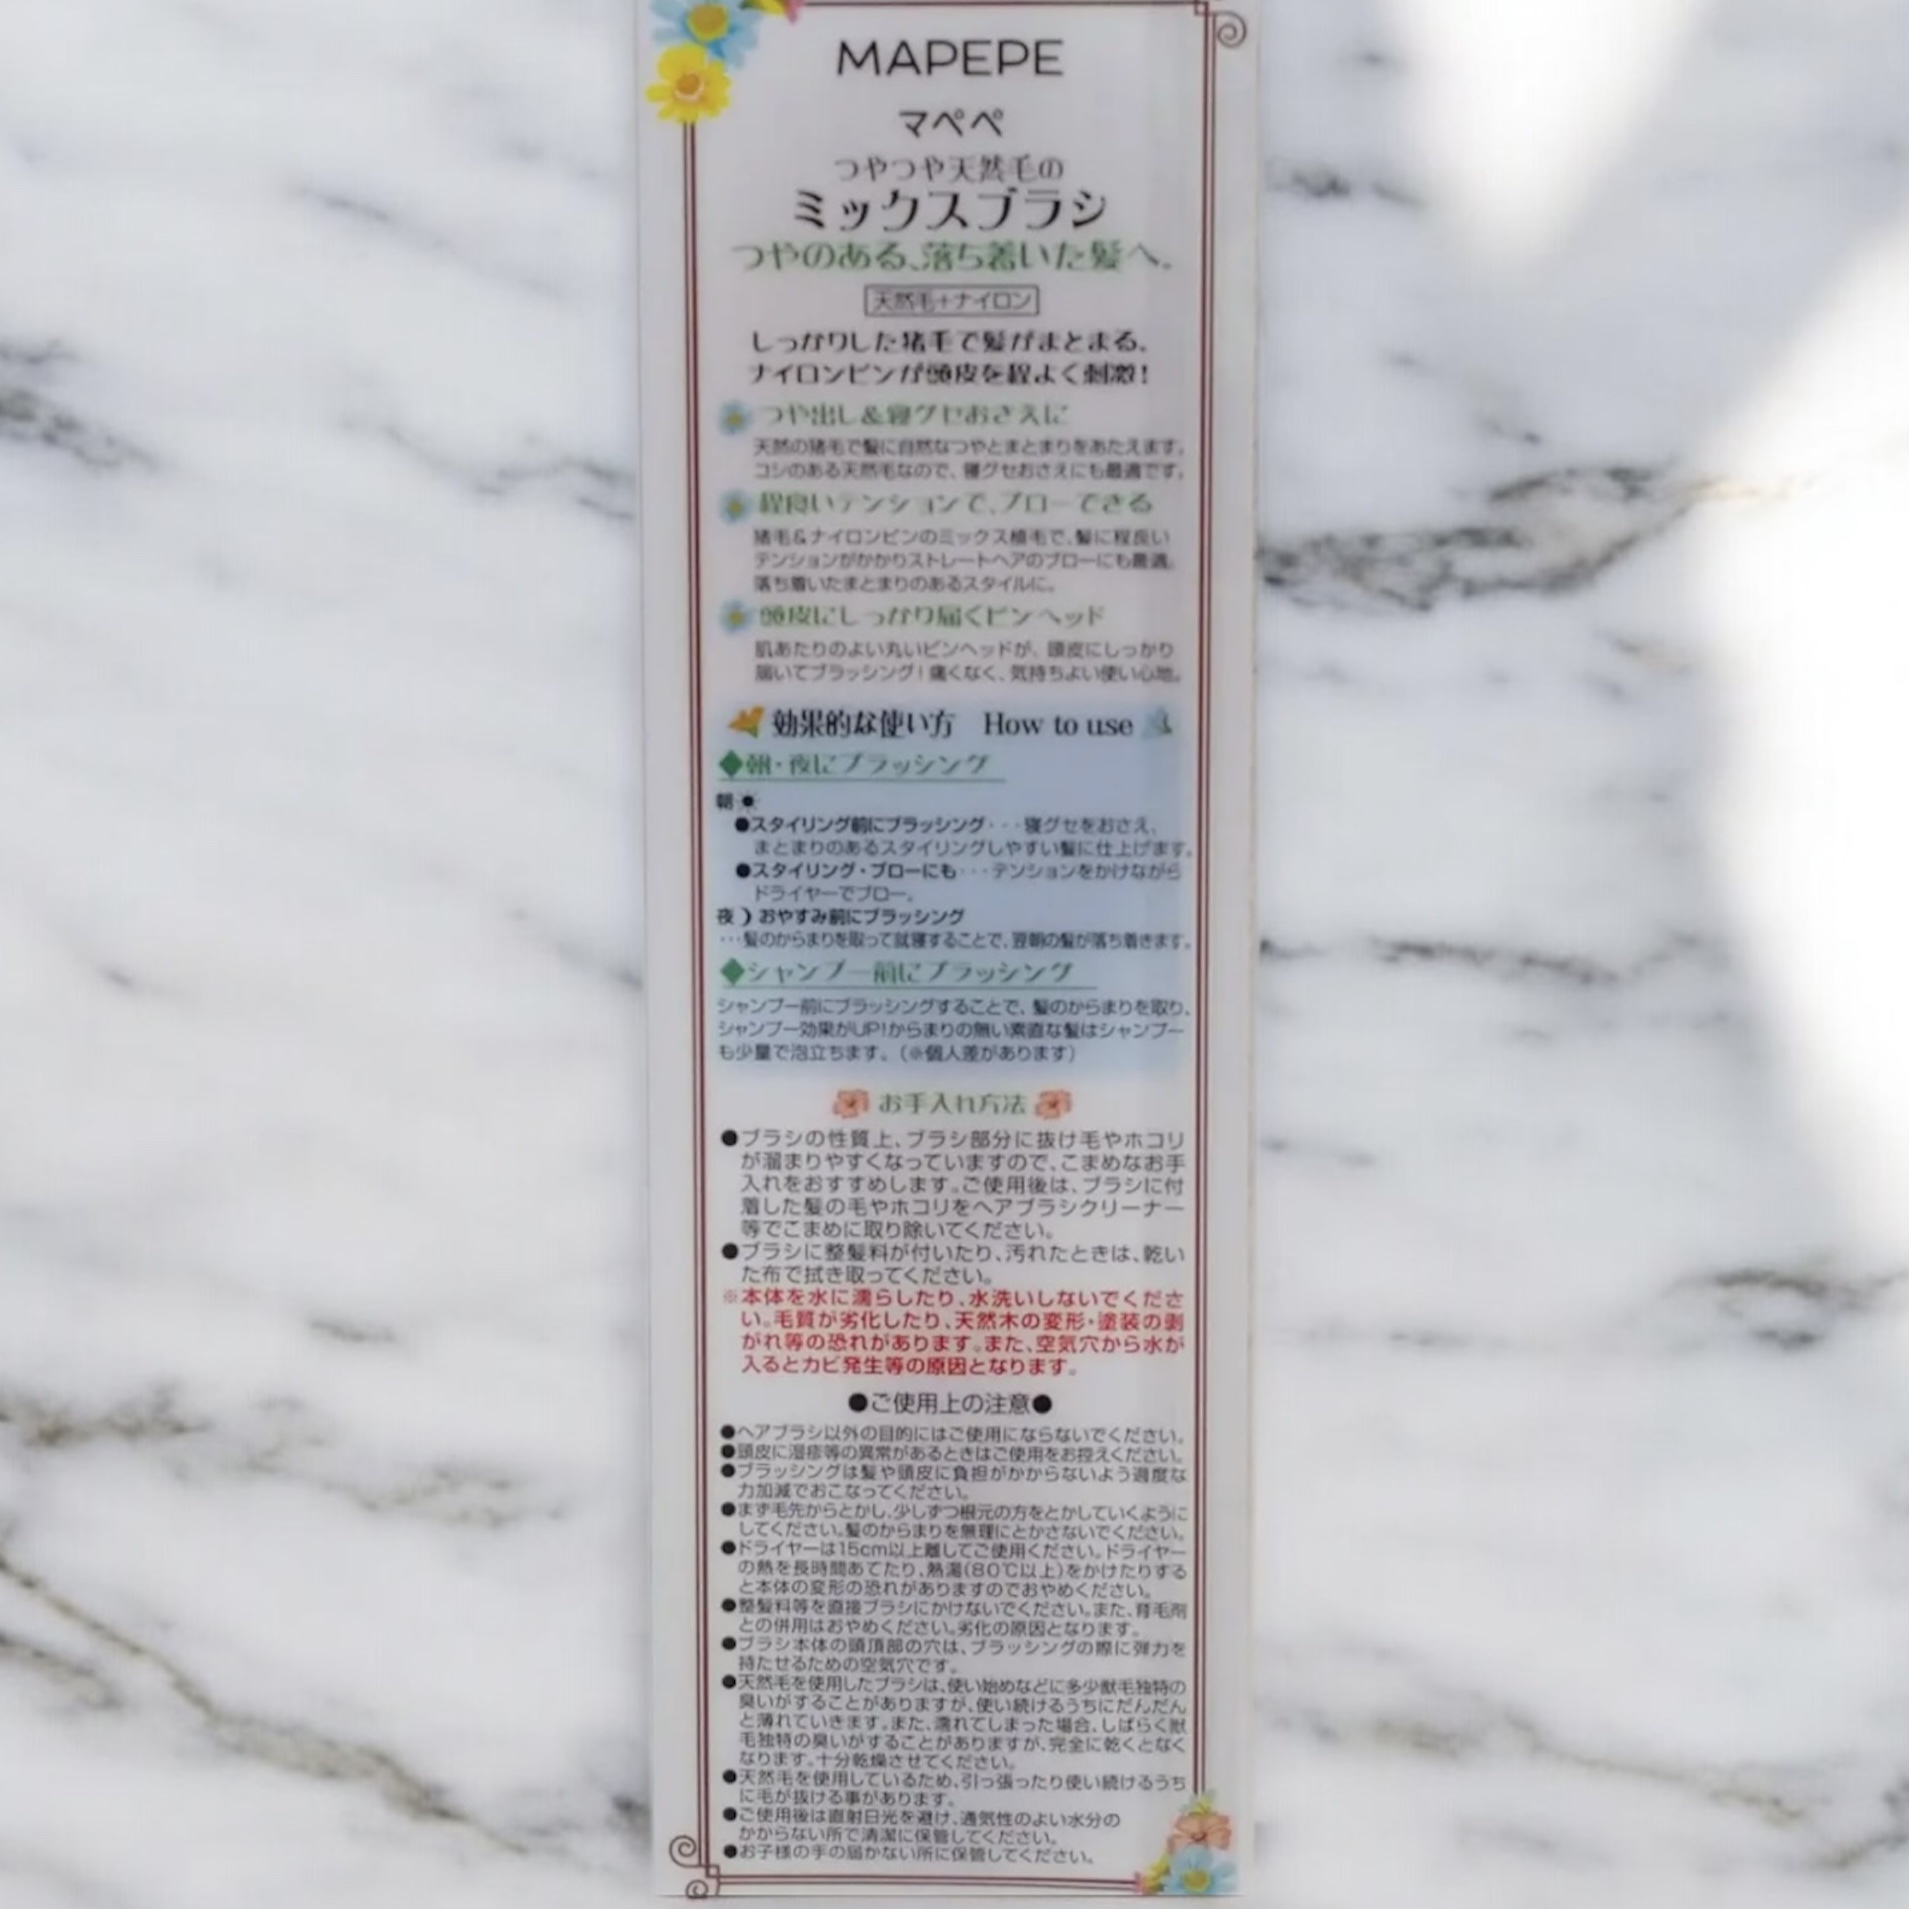 MAPEPE
マペペ
つやつや天然毛の
ミックスブラシ
つやのある、落ち着いた髪へ。
天然毛+ナイロン
しっかりした猪毛で髪がまとまる、
ナイロンピンが頭皮を程よく刺激!
つや出し&寝グセおさえに
天然の猪毛で髪に自然なつやとまとまりをあたえます。
コシのある天然毛なので、寝グセおさえにも最適です。
程良いテンションで、ブローできる
猪毛&ナイロンピンのミックス植毛で、髪に程良い
テンションがかかりストレートヘアのブローにも最適。
落ち着いたまとまりのあるスタイルに。
頭皮にしっかり届くピンヘッド
肌あたりのよい丸いピンヘッドが、頭皮にしっかり
届いてブラッシング!痛くなく、気持ちよい使い心地。
効果的な使い方 How to use
◆朝・夜にブラッシング
朝
●スタイリング前にブラッシング・・・寝グセをおさえ、
まとまりのあるスタイリングしやすい髪に仕上げます。
●スタイリング・ブローにも・・・テンションをかけながら
ドライヤーでブロー。
夜 おやすみ前にブラッシング
・・・髪のからまりを取って就寝することで、翌朝の髪が落ち着きます。
◆シャンプー前にブラッシング
シャンプー前にブラッシングすることで、髪のからまりを取り、
シャンプー効果がUP!からまりの無い素直な髪はシャンプー
も少量で泡立ちます。(※個人差があります)
お手入れ方法
●ブラシの性質上、ブラシ部分に抜け毛やホコリ
が溜まりやすくなっていますので、こまめなお手
入れをおすすめします。ご使用後は、ブラシに付
着した髪の毛やホコリをヘアブラシクリーナー
等でこまめに取り除いてください。
●ブラシに整髪料が付いたり、汚れたときは、乾い
た布で拭き取ってください。
※本体を水に濡らしたり、水洗いしないでくださ
い。毛質が劣化したり、天然木の変形・塗装の剥
がれ等の恐れがあります。また、空気穴から水が
入るとカビ発生等の原因となります。
●ご使用上の注意●
●ヘアブラシ以外の目的にはご使用にならないでください。
●頭皮に湿疹等の異常があるときはご使用をお控えください。
●ブラッシングは髪や頭皮に負担がかからないよう適度な
力加減でおこなってください。
●まず毛先からとかし、少しずつ根元の方をとかしていくように
してください。髪のからまりを無理にとかさないでください。
●ドライヤーは15cm以上離してご使用ください。ドライヤー
の熱を長時間あてたり、熱湯(80℃以上)をかけたりする
と本体の変形の恐れがありますのでおやめください。
●整髪料等を直接ブラシにかけないでください。また、育毛剤
との併用はおやめください。劣化の原因となります。
●ブラシ本体の頭頂部の穴は、ブラッシングの際に弾力を
持たせるための空気穴です。
●天然毛を使用したブラシは、使い始めなどに多少獣毛独特の
臭いがすることがありますが、使い続けるうちにだんだん
と薄れていきます。また、濡れてしまった場合、しばらく獣
毛独特の臭いがすることがありますが、完全に乾くとなく
なります。十分乾燥させてください。
●天然毛を使用しているため、引っ張ったり使い続けるうち
に毛が抜ける事があります。
●ご使用後は直射日光を避け、通気性のよい水分の
かからない所で清潔に保管してください。
●お子様の手の届かない所に保管してください。